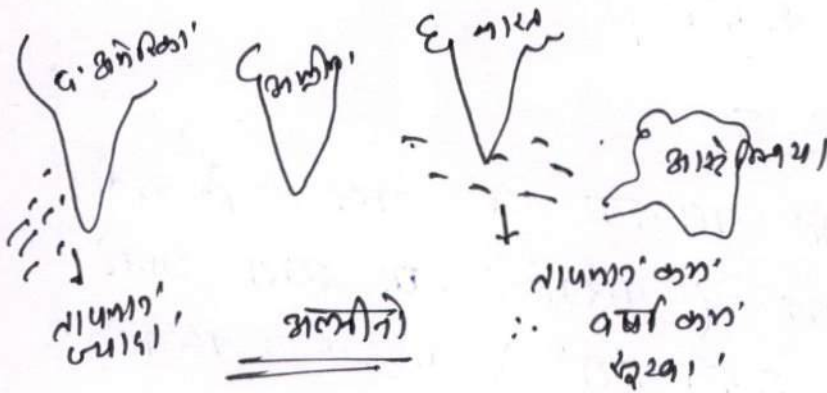 द. अमेरिका
अफ्रीका
भारत
आस्ट्रेलिया
तापमान ज्यादा
अलनीनो
तापमान कम
∴ वर्षा कम
सूखा